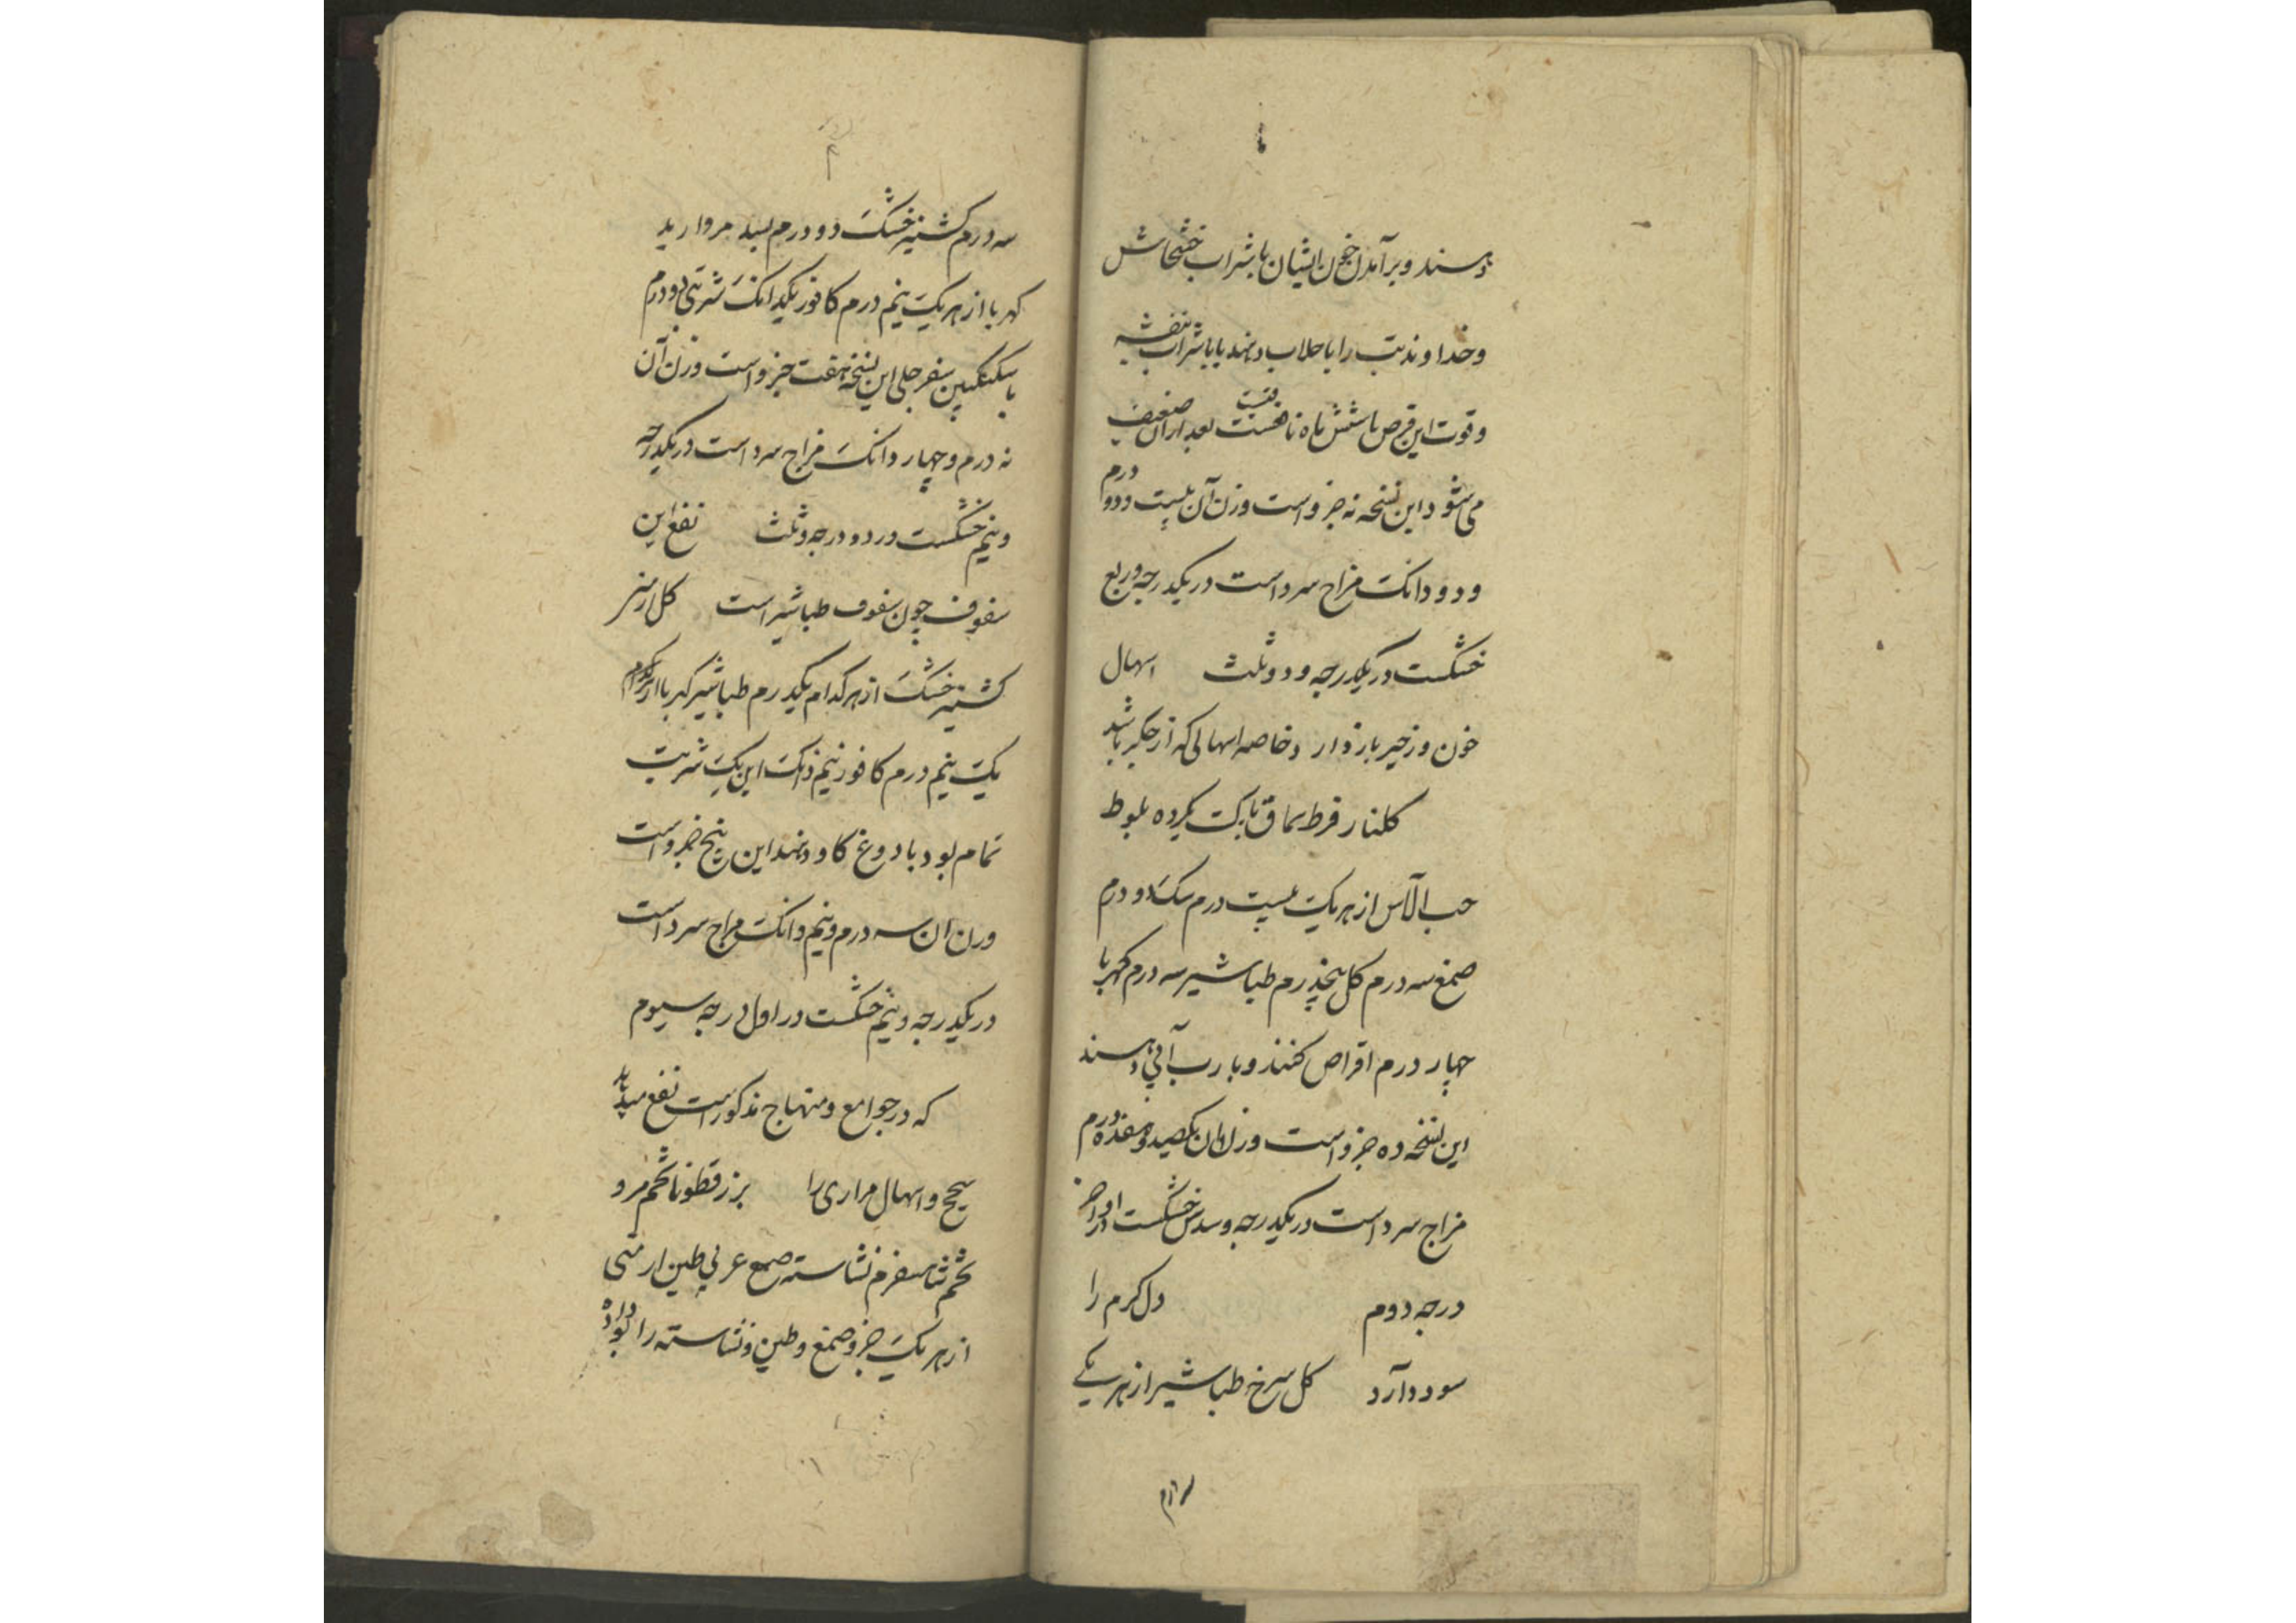 دهسند و برآمدن خون ایشان با شراب خشخاش
و خداوند تب را با جلاب دهند یا با شراب بنفشه
و قوت این قرص تا شش ماه تا بعد ازان ضعیف
می شود این نسخه نه جزو است وزن آن بیست و دو درم
و دو دانک مزاج سرد است در یکدرجه و ربع
خشکست در یکدرجه و دو ثلث اسهال
خون و زحیر باز دارد خاصه اسهالی که از جکر باشد
کلنار قرط سماق بلوط
حب الآس از هر یک بیست درم سک دو درم
صمغ سه درم کل پنجدرم طباشیر سه درم کهربا
چهار درم اقراص کنند و با رب آبی دهسند
این نسخه ده جزو است وزن آن یکصد و هفده درم
مزاج سرد است در یکدرجه و سدس خشکست در اواخر
درجه دوم دل کرم را
سود دارد کل سرخ طباشیر از هر یکے
سه درم
سه درم کشنیز خشک دو درم بسد مروارید
کهربا از هر یک نیم درم کافور یکدانک شربتی دو درم
با سکنکبین سفرجلی این نسخه هفت جزو است وزن آن
نه درم و چهار دانک مزاج سرد است در یکدرجه
و نیم خشکست در دو درجه و ثلث نفع این
سفوف چون سفوف طباشیر است کل ارمنی
کشنیز خشک از هر کدام یکدرم طباشیر کهربا از هر کدام
یک نیم درم کافور نیم دانک این یک شربت
تمام بود با دوغ کاو دهند این پنج جزو است
وزن آن سه درم و نیم دانک مزاج سرد است
در یکدرجه و نیم خشکست در اول درجه سیوم
که در جوامع و منهاج مذکور است نفع میدهد
سحج و اسهال مراری را بزرقطونا تخم مرو
تخم شاهسفرم نشاسته صمع عربی طین ارمنی
از هر یک جزو صمغ و طین و نشاسته را بو داده